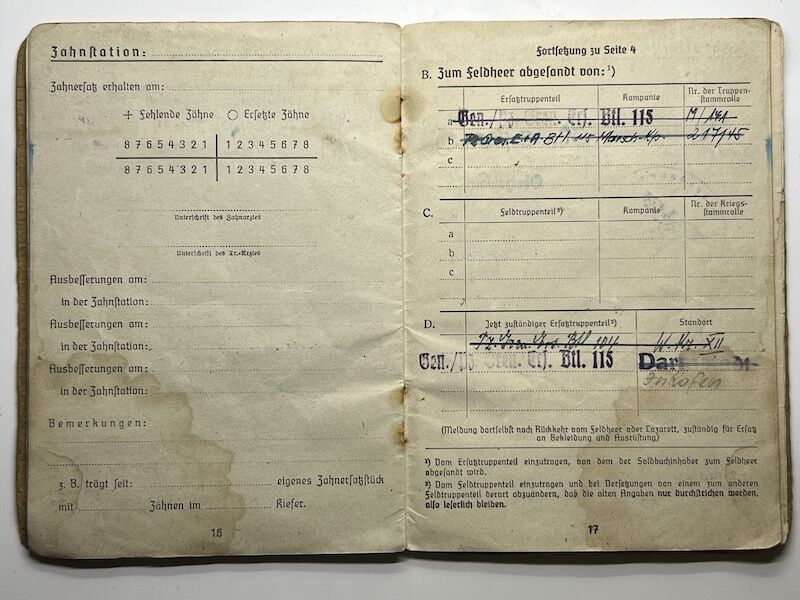 Zahnstation:
Zahnersatz erhalten am:
+ Fehlende Zähne ○ Ersetzte Zähne
8 7 6 5 4 3 2 1 | 1 2 3 4 5 6 7 8
8 7 6 5 4 3 2 1 | 1 2 3 4 5 6 7 8
Unterschrift des Zahnarztes
Unterschrift des Tr.-Arztes
Ausbesserungen am:
in der Zahnstation:
Ausbesserungen am:
in der Zahnstation:
Ausbesserungen am:
in der Zahnstation:
Bemerkungen:
z. B. trägt seit: eigenes Zahnersatzstück
mit Zähnen im Kiefer.
16
Fortsetzung zu Seite 4
B. Zum Feldheer abgesandt von: ¹)
Ersatztruppenteil Kompanie Nr. der Truppen-
stammrolle
a Gren. Ers. Btl. 115
b Btl. 115 Marsch-Kp. 217/45
c
C. Feldtruppenteil ²) Kompanie Nr. der Kriegs-
stammrolle
a
b
c
D. Jetzt zuständiger Ersatztruppenteil ²) Standort
W. Kr. XII
Gren. Ers. Btl. 115
(Meldung dortselbst nach Rückkehr vom Feldheer oder Lazarett, zuständig für Ersatz
an Bekleidung und Ausrüstung)
¹) Vom Ersatztruppenteil einzutragen, von dem der Soldbuchinhaber zum Feldheer
abgesandt wird.
²) Vom Feldtruppenteil einzutragen und bei Versetzungen von einem zum anderen
Feldtruppenteil derart abzuändern, daß die alten Angaben nur durchstrichen werden,
also leserlich bleiben.
17